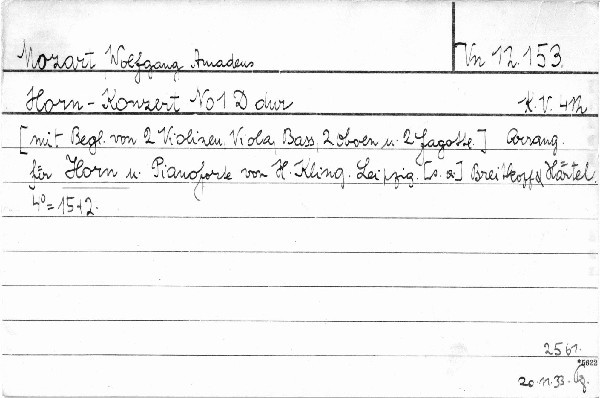 Mozart Wolfgang Amadeus
Vn 12.153.
Horn - Konzert No 1 D dur
K.V. 412
[mit Begl. von 2 Violinen, Viola, Bass, 2 Oboen u. 2 Fagotte.] Arrang.
für Horn u. Pianoforte von H. Kling. Leipzig. [s. a.] Breitkopf & Härtel.
4° = 15+2.
2561.
*25622
20.11.33.